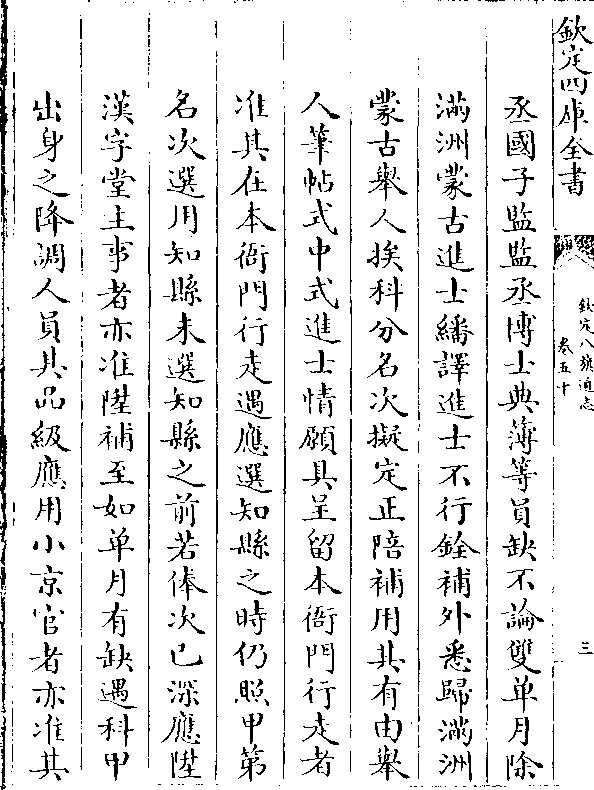 欽定四庫全書
欽定八旗通志
卷五十
三
丞國子監監丞博士典薄等員缺不論雙單月除
滿洲蒙古進士繙譯進士不行銓補外悉歸滿洲
蒙古舉人挨科分名次擬定正陪補用其有由舉
人筆帖式中式進士情願具呈留本衙門行走者
准其在本衙門行走遇應選知縣之時仍照甲第
名次選用知縣未選知縣之前若俸次已深應陞
漢字堂主事者亦准陞補至如單月有缺遇科甲
出身之降調人員其品級應用小京官者亦准其